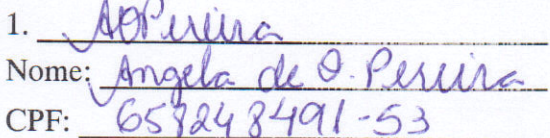 1. AOPereira
Nome: Angela de O. Pereira
CPF: 658248491-53